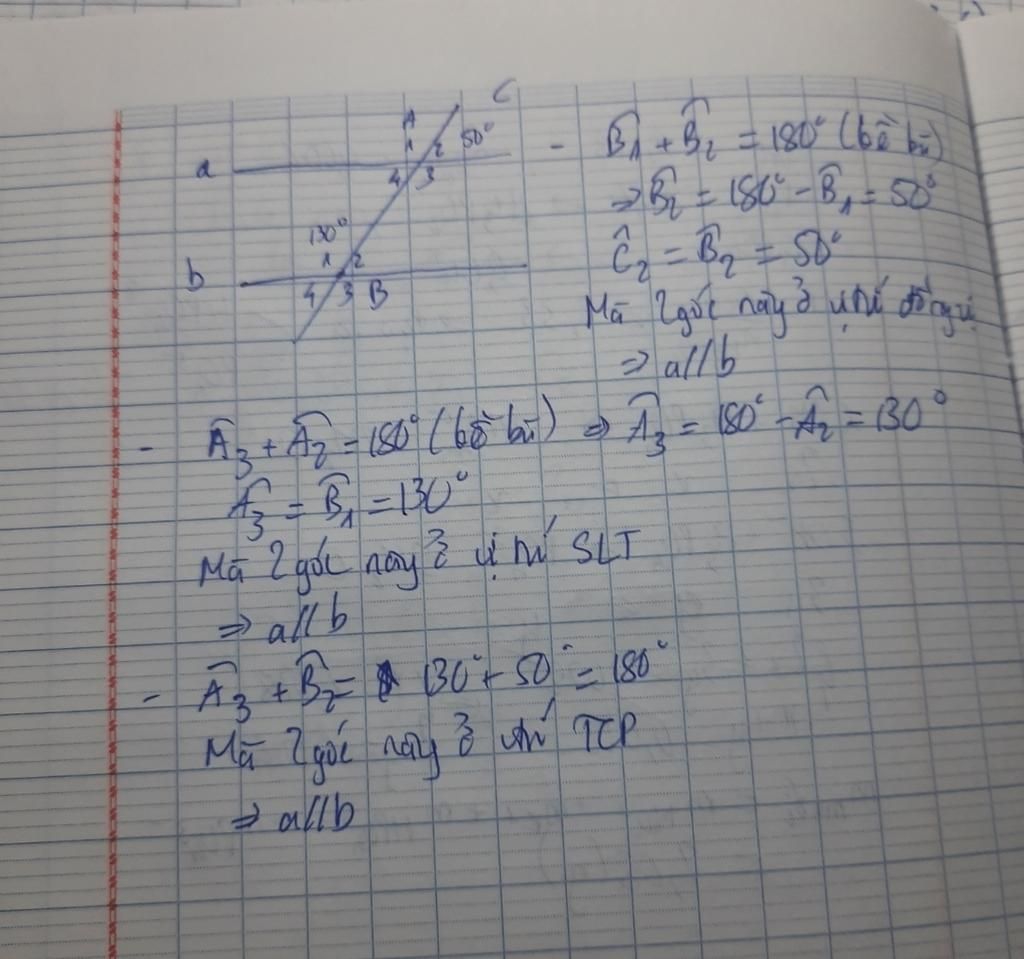 C
A
1 2 50°
a
4 3
130°
1 2
b
4 3 B
- B̂1 + B̂2 = 180° (kề bù)
⇒ B̂2 = 180° - B̂1 = 50°
Ĉ2 = B̂2 = 50°
Mà 2 góc này ở vị trí đồng vị
⇒ a//b
- Â3 + Â2 = 180° (kề bù) ⇒ Â3 = 180° - Â2 = 130°
Â3 = B̂1 = 130°
Mà 2 góc này ở vị trí SLT
⇒ a//b
- Â3 + B̂2 = 130° + 50° = 180°
Mà 2 góc này ở vị trí TCP
⇒ a//b